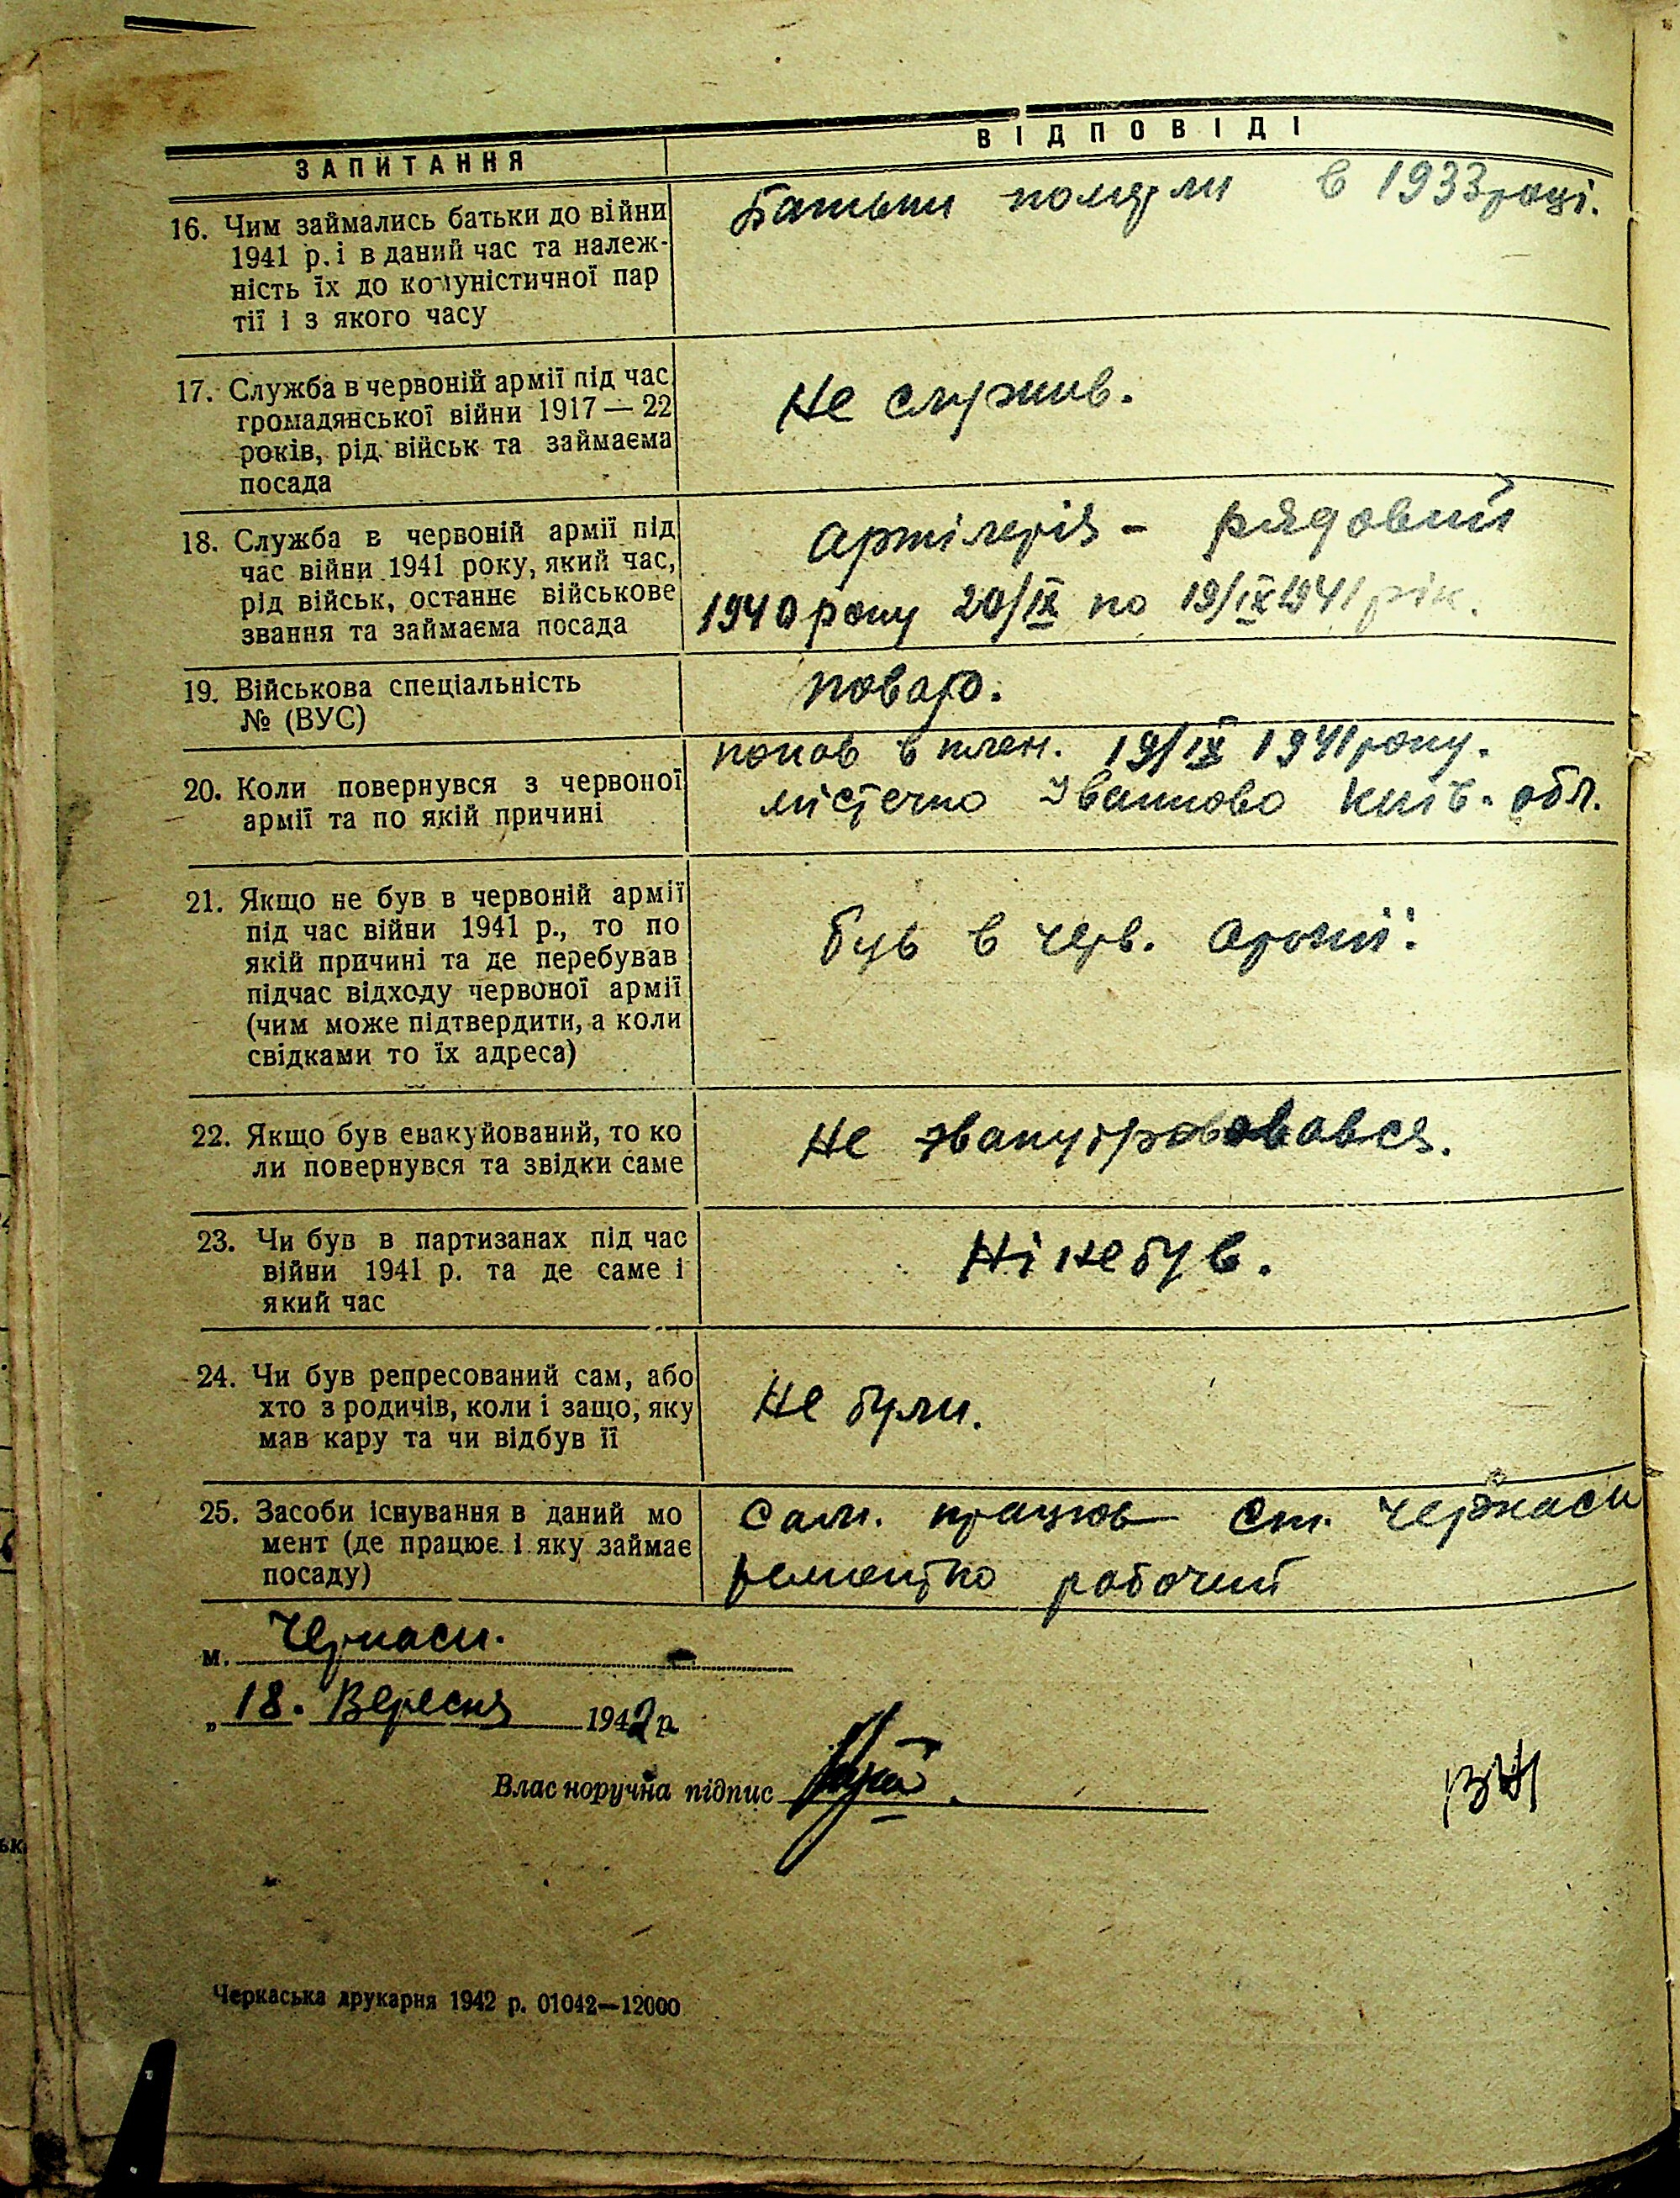 ЗАПИТАННЯ
ВІДПОВІДІ
16. Чим займались батьки до війни
1941 р. і в даний час та належ-
ність їх до комуністичної пар
тії і з якого часу
Батьки померли в 1933 році.
17. Служба в червоній армії під час
громадянської війни 1917 — 22
років, рід військ та займаєма
посада
Не служив.
18. Служба в червоній армії під
час війни 1941 року, який час,
рід військ, останнє військове
звання та займаєма посада
Артілерія - рядовий
1940 року 20/IX по 19/IX 1941 рік.
19. Військова спеціальність
№ (ВУС)
повар.
20. Коли повернувся з червоної
армії та по якій причині
попав в плен. 19/IX 1941 року.
містечко Іванково Київ. обл.
21. Якщо не був в червоній армії
під час війни 1941 р., то по
якій причині та де перебував
підчас відходу червоної армії
(чим може підтвердити, а коли
свідками то їх адреса)
був в черв. армії.
22. Якщо був евакуйований, то ко
ли повернувся та звідки саме
Не
23. Чи був в партизанах під час
війни 1941 р. та де саме і
який час
Ні не був.
24. Чи був репресований сам, або
хто з родичів, коли і защо, яку
мав кару та чи відбув її
Не були.
25. Засоби існування в даний мо
мент (де працює і яку займає
посаду)
Сам. працюв Ст. Черкаси
рабочий
м. Черкаси.
„ 18. Вересня 1942 р.
Власноручна підпис
Черкаська друкарня 1942 р. 01042—12000